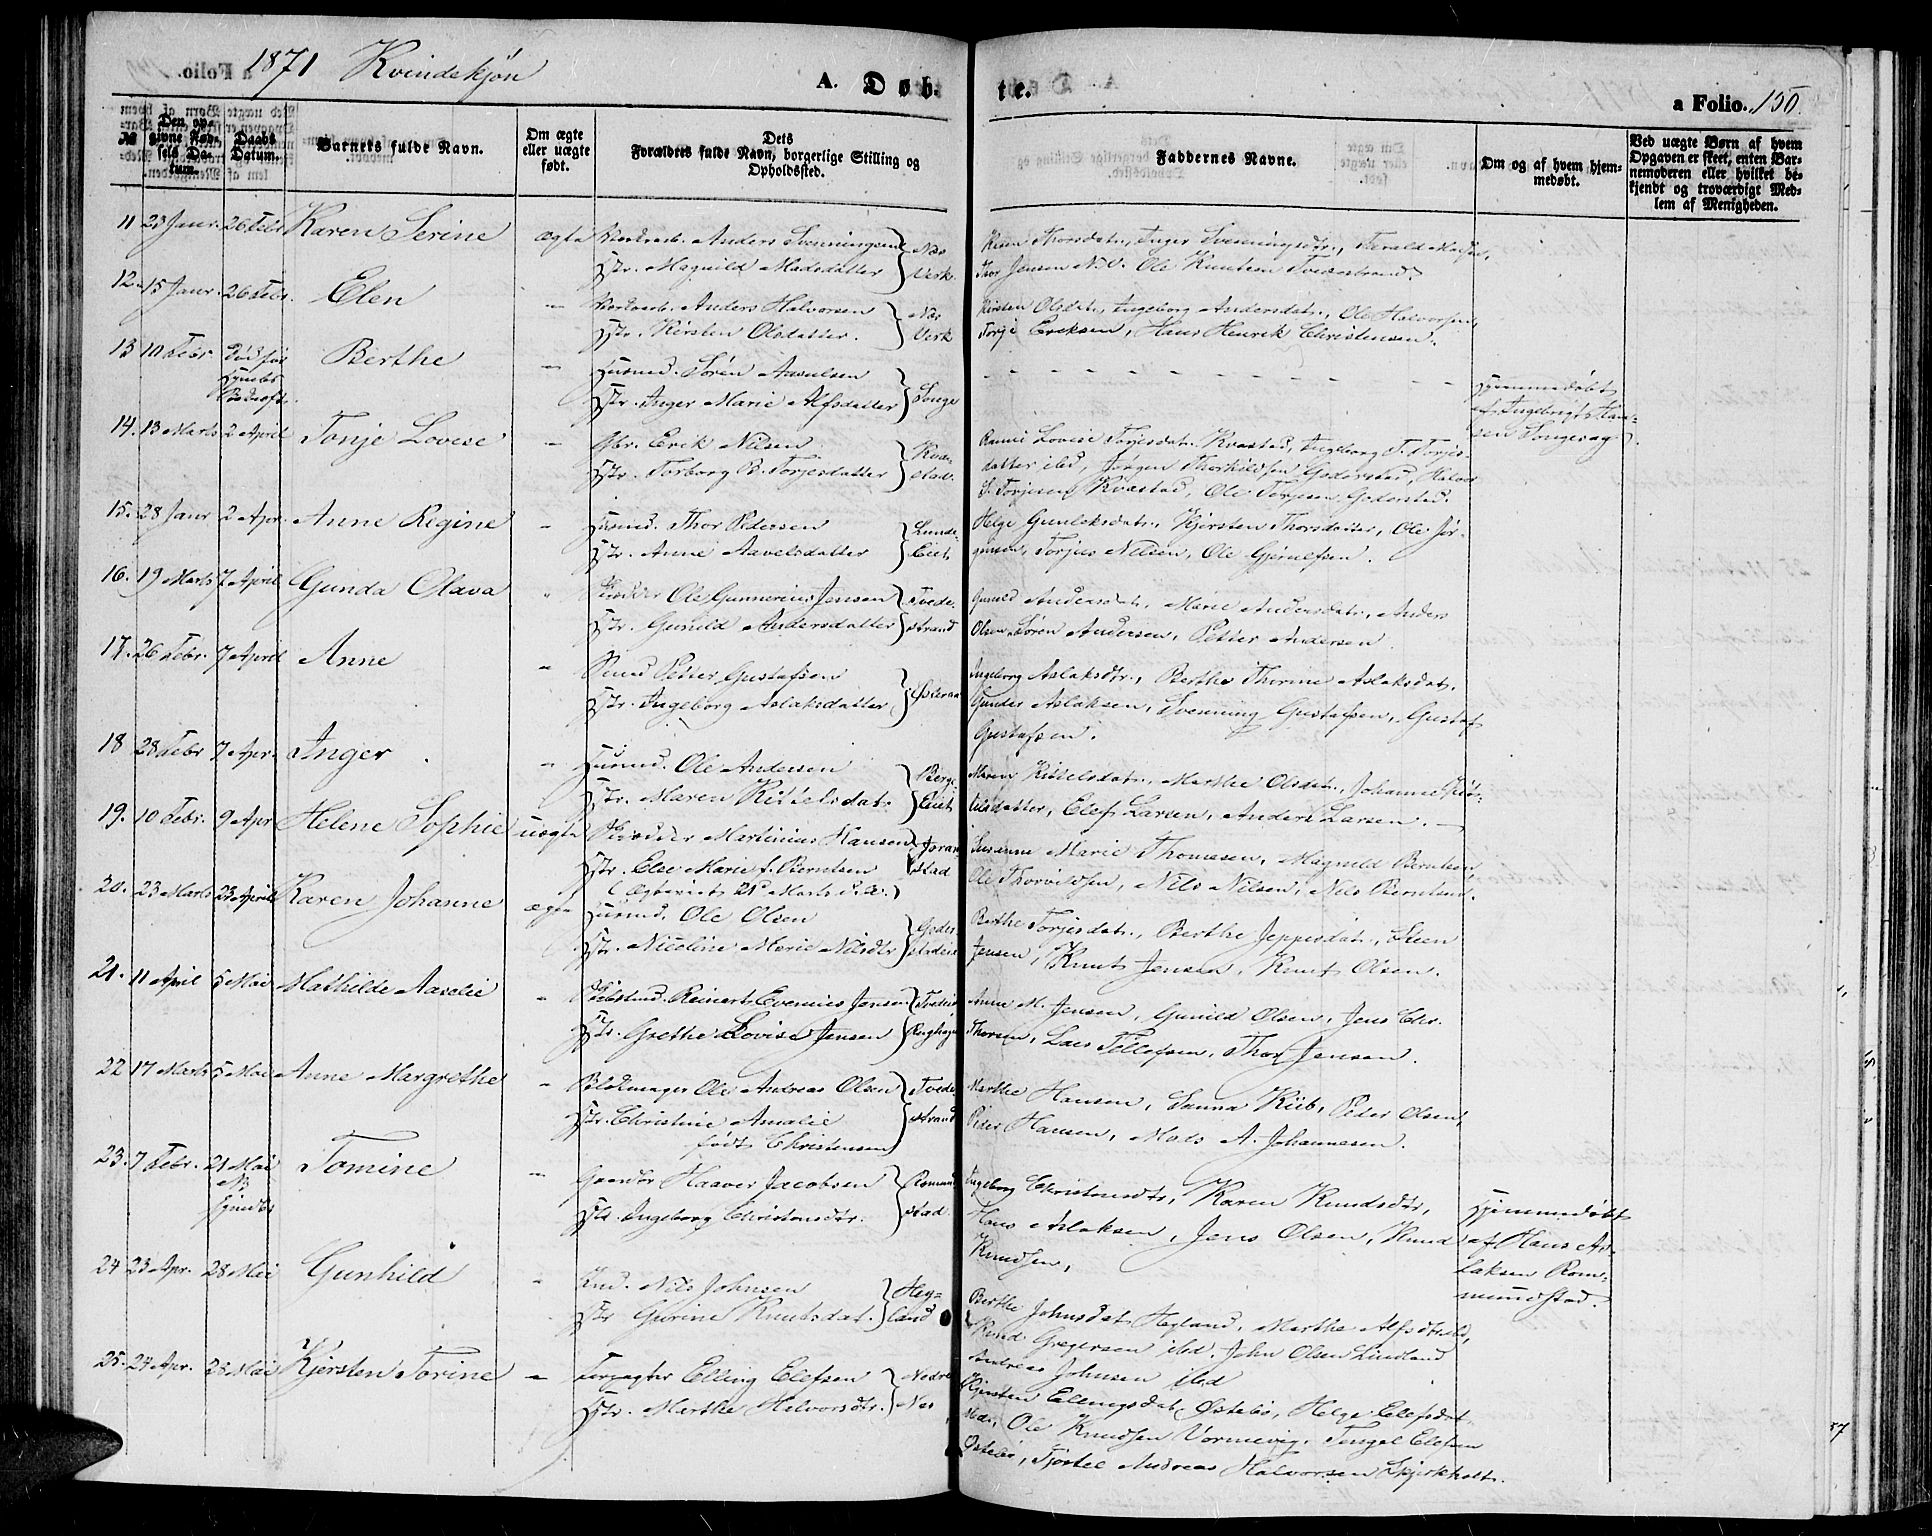 1871 Kvindekjøn
A. Døb-
te.
a Folio. 150.
№
Den op-
givne Fød-
sels Da-
tum.
Daabs
Datum.
Barnets fulde Navn.
Om ægte
eller uægte
født.
Dets
Forældres fulde Navn, borgerlige Stilling og
Opholdssted.
Faddernes Navne.
Om og af hvem hjem-
medøbt.
Ved uægte Børn af hvem
Opgaven er skeet, enten Bar-
nemoderen eller hvilket be-
kjendt og troværdigt Med-
lem af Menigheden.
11 23 Janr. 26 Febr Karen Serine ægte Anders Svenningsen Næs
Str. Magnild Madsdatter Verk.
Thorsdatr., Inger Svenningsdtr., Terald Madsen,
Thor Jensen N.V. Ole Knutsen Tvedestrand.
12. 15 Janr. 26 Febr. Elen " Anders Halvorsen Næs
Str. Kirsten Olsdatter. Verk
Kirsten Olsdatr., Ingeborg Andersdatr., Ole Halvorsen,
Torje Ericksen, Hans Henrik Christensen.
13 10 Febr. Død før Berthe " Husmd. Søren Aavelsen
Str. Inger Marie Alfsdatter Songe
Hjemmedøbt
af Ingebrigt Han-
sen Songesag.
14. 13 Marts 2 April Tonje Lovise " Gbr. Erik Nilsen Kva-
Str. Torborg B. Torjesdatter stad.
Lovise Torjesdatr. Kvastad, Ingeborg T. Torjes-
datter ibd, Jørgen Thorkildsen Goderstad, Halvor
S. Torjesen Kvastad, Ole Torjesen Goderstad.
15. 28 Janr 2 Apr. Anne Regine " Husmd. Thor Pedersen Lunde-
Str. Anne Aavelsdatter Eiet
Helge Gunleksdatr., Kjersten Thorsdatter, Ole Jør-
gensen, Torjus Nilsen, Ole Gjerulfsen.
16. 19 Marts 7 April Gunda Olava " Ole Gunnerius Jensen Tvede-
Str. Gunild Andersdatter strand
Gunild Andersdatr., Marie Andersdatr., Anders
Olsen, Søren Andersen, Petter Andersen.
17. 26 Febr. 7 April Anne " Petter Gustafsen
Str. Ingeborg Aslaksdatter Østeraa
Ingeborg Aslaksdtr., Berthe Thorine Aslaksdatr.
Gunder Aslaksen, Svenning Gustafsen, Gustaf
Gustafsen.
18 28 Febr 7 Apr. Inger. " Husmd. Ole Andersen Berge
Str. Maren Kittelsdatr. Eiet
Maren Kittelsdatr., Marthe Olsdatr., Johanne Kit-
telsdatter, Elef Larsen, Anders Larsen.
19. 10 Febr. 9 Apr Helene Sophie uægte Martinius Hansen Joran-
Str. Else Marie f. Berntsen stad
(Ægteviet 21 Marts d.A.)
Susanne Marie Thomesen, Magnild Berntsen,
Ole Thorvildsen, Nils Nilsen, Nils Berntsen.
20. 23 Marts 23 April Karen Johanne ægte Husmd. Ole Olsen Goder-
Str. Nicoline Marie Nilsdtr stadeie
Berthe Torjesdatr., Berthe Jeppesdatr., Steen
Jensen, Knut Jensen, Knut Olsen.
21. 11 April 5 Mai Mathilde Aaselie " Reinert Evenius Jensen Tvedestr
Str. Grethe Lovise Jensen
Anne M. Jensen, Gunild Olsen, Jens Chr.
Thorsen, Lars Tellefsen, Thor Jensen.
22 17 Marts 5 Mai Anne Margrethe " Blokmager Ole Andreas Olsen Tvede-
Str. Christine Amalie strand
født Christensen
Marthe Hansen, Sanna Riib, Peder Olsen,
Peder Hansen, Mads A. Johannesen.
23. 7 Febr. 21 Mai Tomine " Gaardbr Haaver Jacobsen Romund
Str. Ingeborg Christensdtr. stad
Ingeborg Christensdtr, Karen Knudsdtr,
Hans Aslaksen, Jens Olsen, Knud
Knudsen,
Hjemmedøbt
af Hans As-
laksen Rom-
mundstad.
24 23 Apr. 28 Mai Gunhild " Nils Johnsen Heg-
Str Gurine Knutsdatr. land
Berthe Johnsdatr Hegland, Marthe Alfsdtr ibd,
Knud Gregersen ibd. John Olsen Lindland
Andreas Johnsen ibd
25. 27 Apr. 28 Mai Kjersten Torine " Forpagter Elling Elefsen Nedre
Str. Marthe Halvorsdtr. Næs
Kjersten Ellingsdatr Østebø, Helge Elefsdatr
Næs, Ole Knudsen Vormevig, Tengel Elefsen
Østebø, Tjøstel Andreas Halvorsen Skjerkholt.